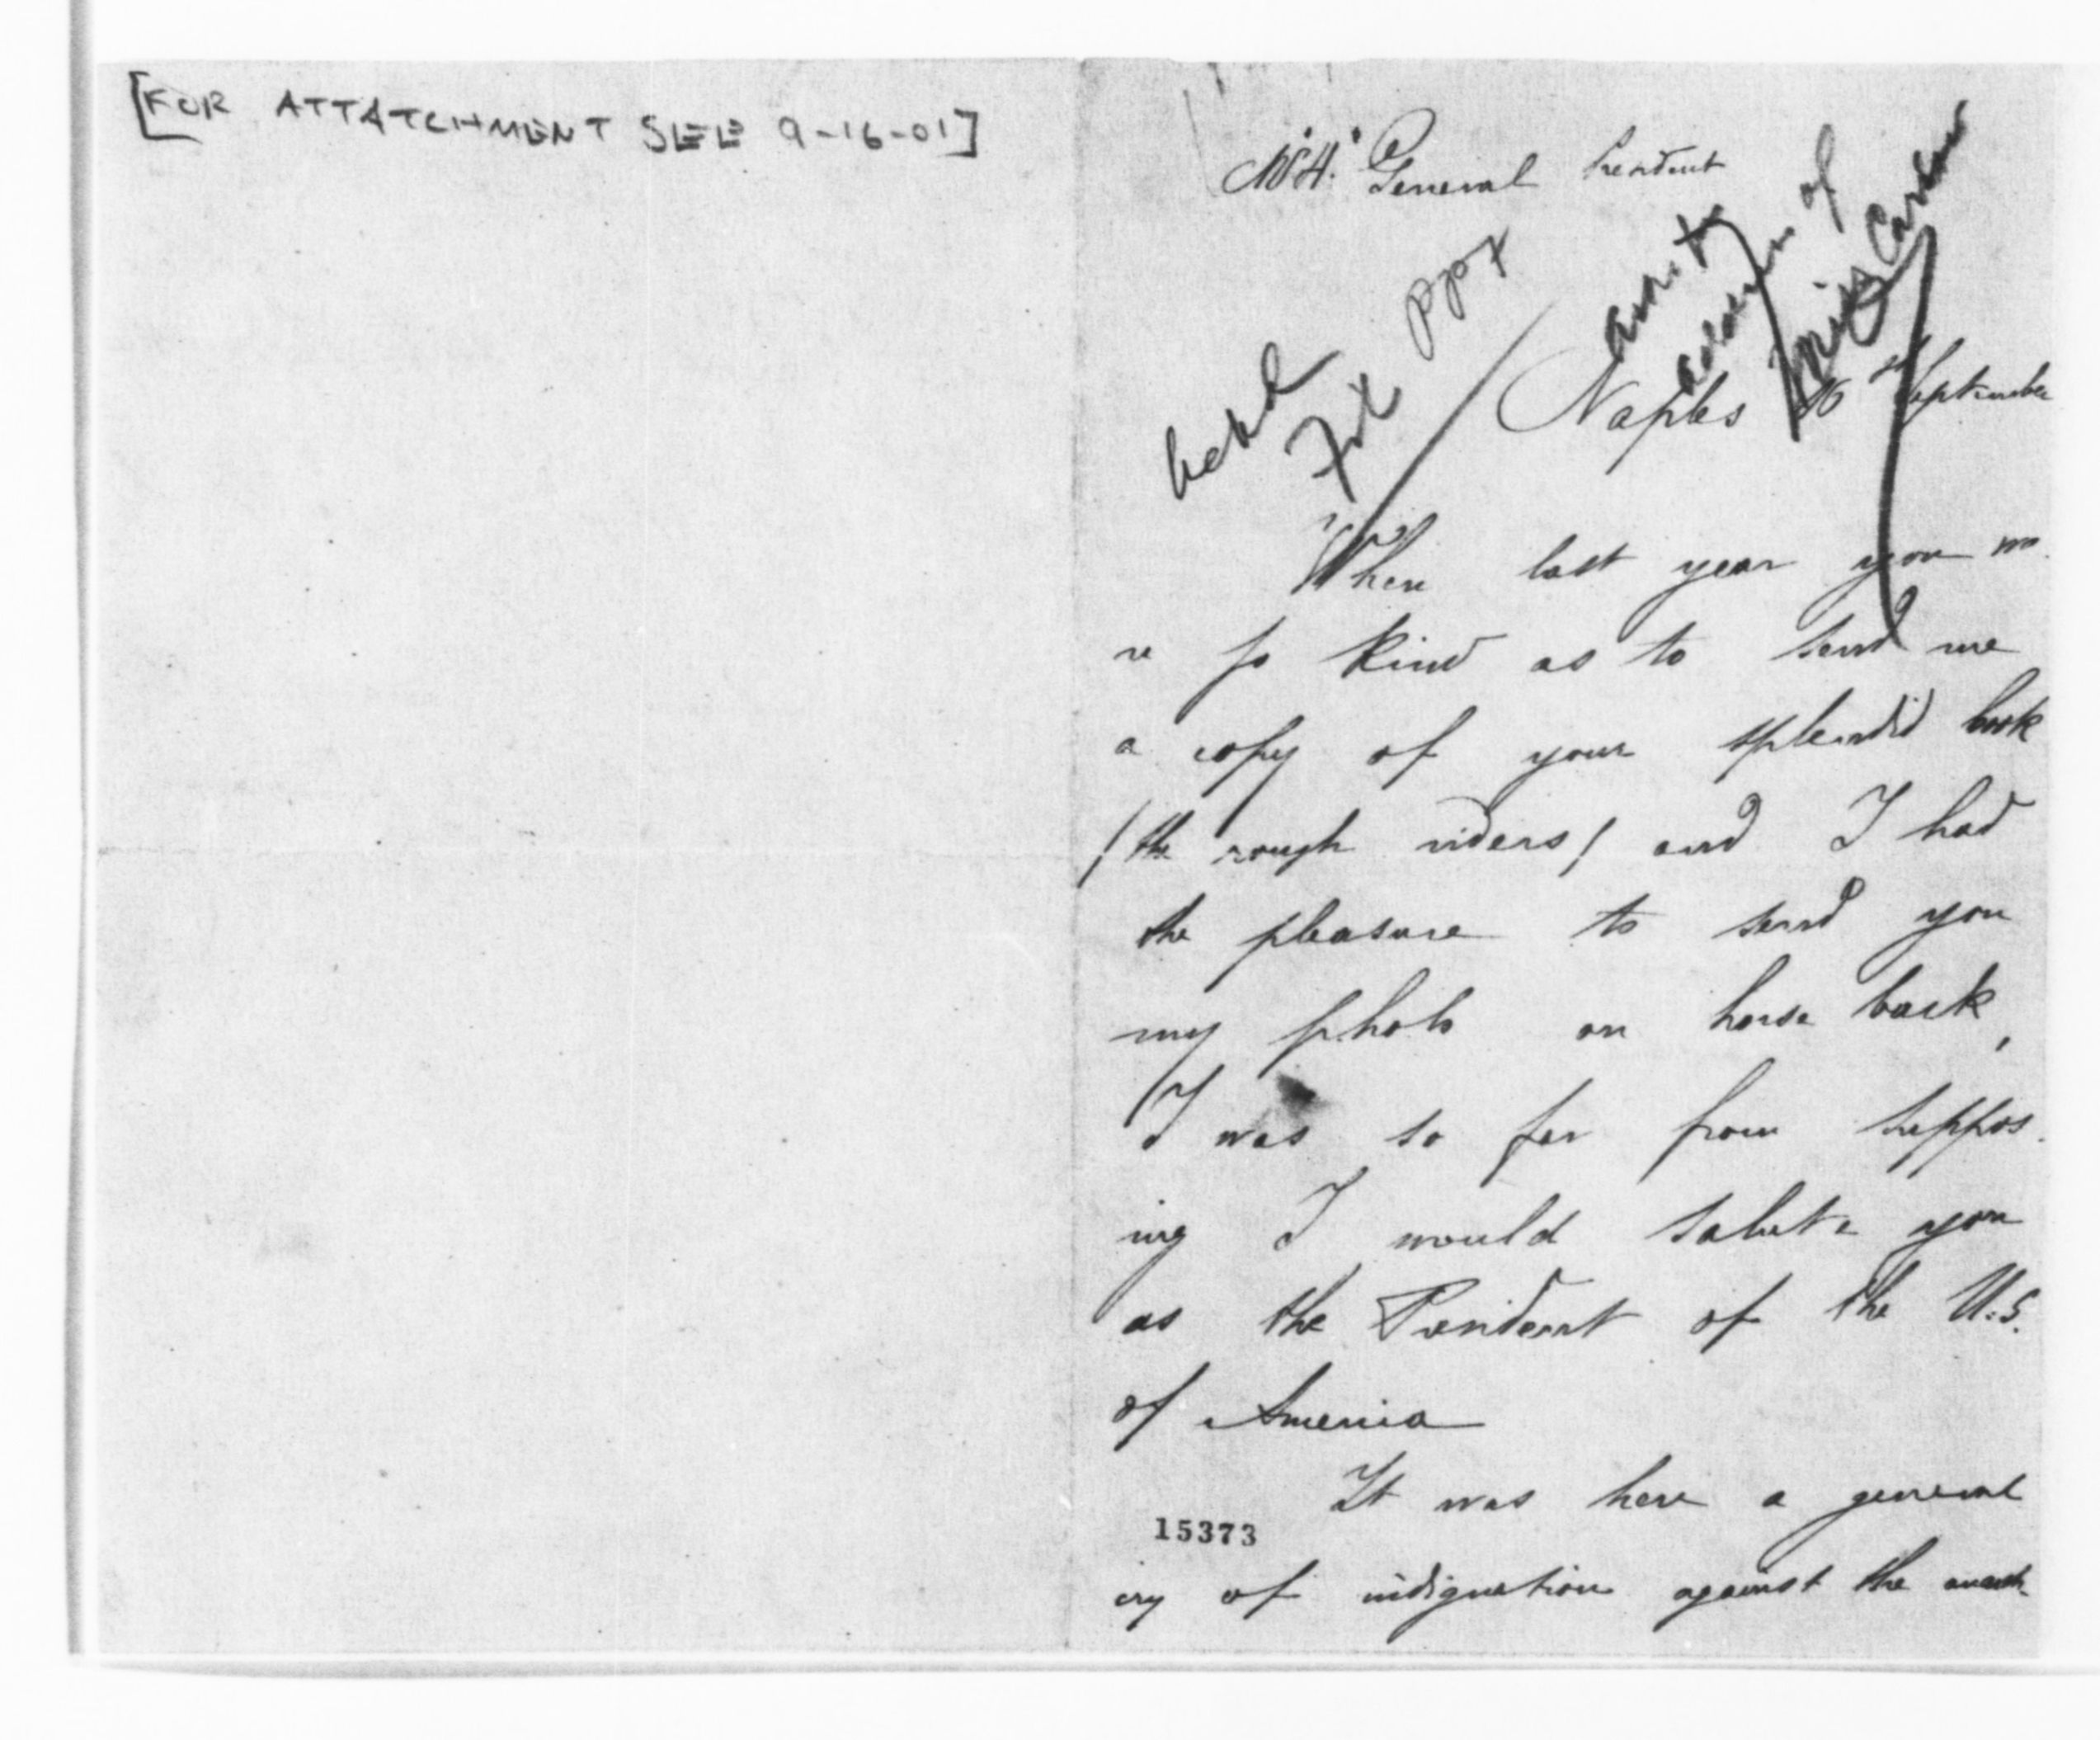 [FOR ATTATCHMENT SEE 9-16-01]
General President
ackd
Ppf
Naples 16 September
When last year you we
re so kind as to send me
a copy of your splendid book
/the rough riders/ and I had
the pleasure to send you
my photo on horse back,
I was so far from suppos
ing I would salute you
as the President of the U.S.
of America
It was here a general
15373
cry of indignation against the